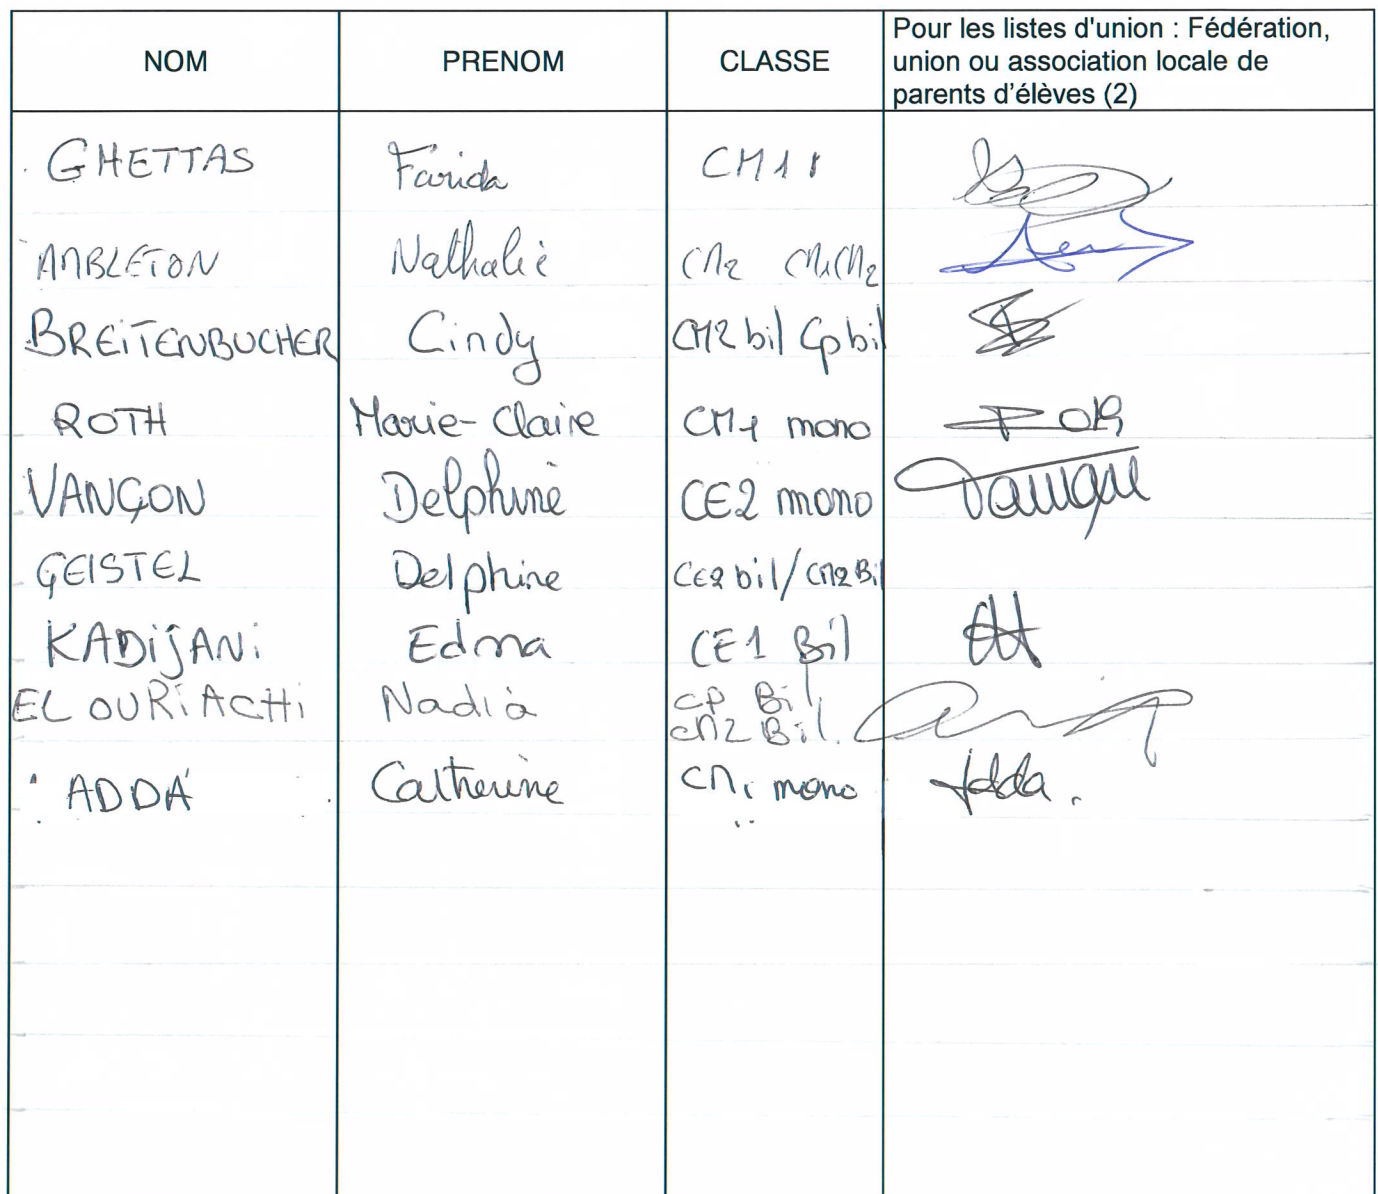 NOM PRENOM CLASSE Pour les listes d'union : Fédération,
union ou association locale de
parents d'élèves (2)
GHETTAS Farida CM1
AMBLETON Nathalie CM2 CM1CM2
BREITENBUCHER Cindy CM2 bil Cp bil
ROTH Marie-Claire CM1 mono
VANÇON Delphine CE2 mono
GEISTEL Delphine CE2 bil/CM2 Bil
KADIJANI Edma CE1 Bil
EL OURIACHI Nadia CP Bil.
CM2 Bil.
ADDA Catherine CM1 mono Adda.